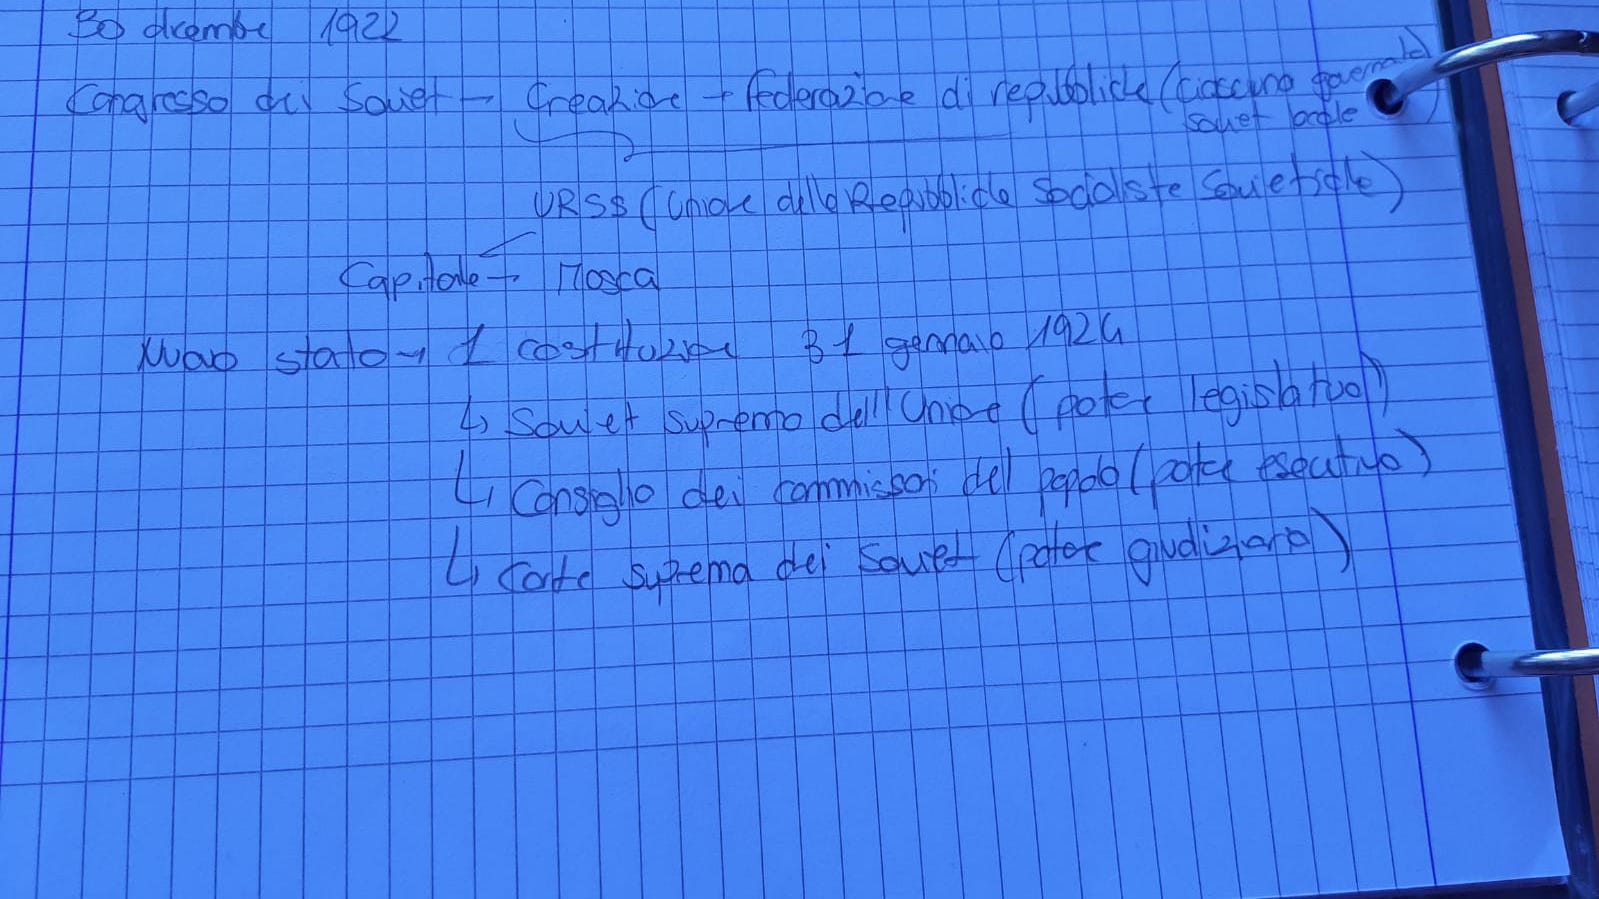 30 dicembre 1922
Congresso dei Soviet → Creazione → federazione di repubbliche (ciascuna governata
soviet locale)
URSS (Unione delle Repubbliche Socialiste Sovietiche)
Capitale → Mosca
Nuovo stato → 1 costituzione 31 gennaio 1924
↳ Soviet supremo dell'Unione (potere legislativo)
↳ Consiglio dei commissari del popolo (potere esecutivo)
↳ Corte suprema dei Soviet (potere giudiziario)